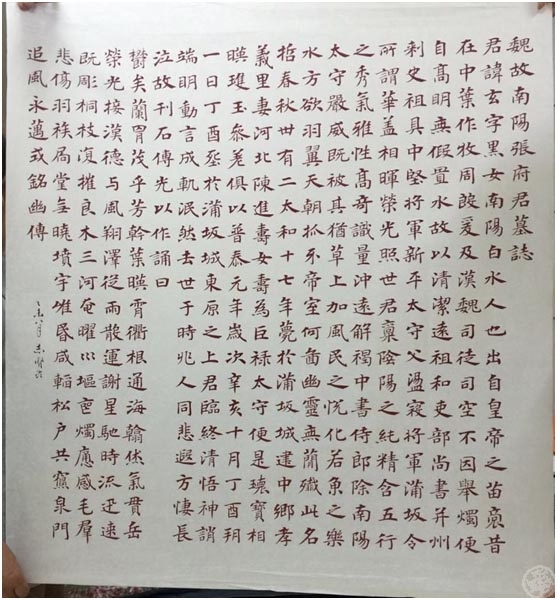 魏故南陽張府君墓誌
君諱玄字黑女南陽白水人也出自皇帝之苗裔昔
在中葉作牧周殷爰及漢魏司徒司空不因舉燭便
自高明無假置水故以清潔遠祖和吏部尚書并州
刺史祖具中堅將軍新平太守父盪寇將軍蒲坂令
所謂華蓋相暉榮光照世君稟陰陽之純精含五行
之秀氣雅性高奇識量沖遠解褐中書侍郎除南陽
太守嚴威既被其猶草上加風民之悅化若魚之樂
水方欲羽翼天朝抓牙帝室何啚幽靈無蕳殲此名
哲春秋卅有二太和十七年薨於蒲坂城建中鄉孝
義里妻河北陳進壽女壽為巨祿太守便是瓌寶相
暎瓊玉參差俱以普泰元年歲次辛亥十月丁酉朔
一日丁酉葬於蒲坂城東原之上君臨終清悟神誚
端明動言成軌泯然去世于時兆人同悲遐方悽長
泣故刊石傳光以作誦曰
鬱矣蘭胄茂乎芳幹暎霄衢根通海翰休氣貫岳
榮光接漢德与風翔澤從雨散運謝星馳時流迅速
既彫桐枝復摧良木三河奄曜巛塸燭應感毛群
悲傷羽族局堂無曉墳宇唯昏咸輴松戶共寢泉門
追風永邁式銘幽傳